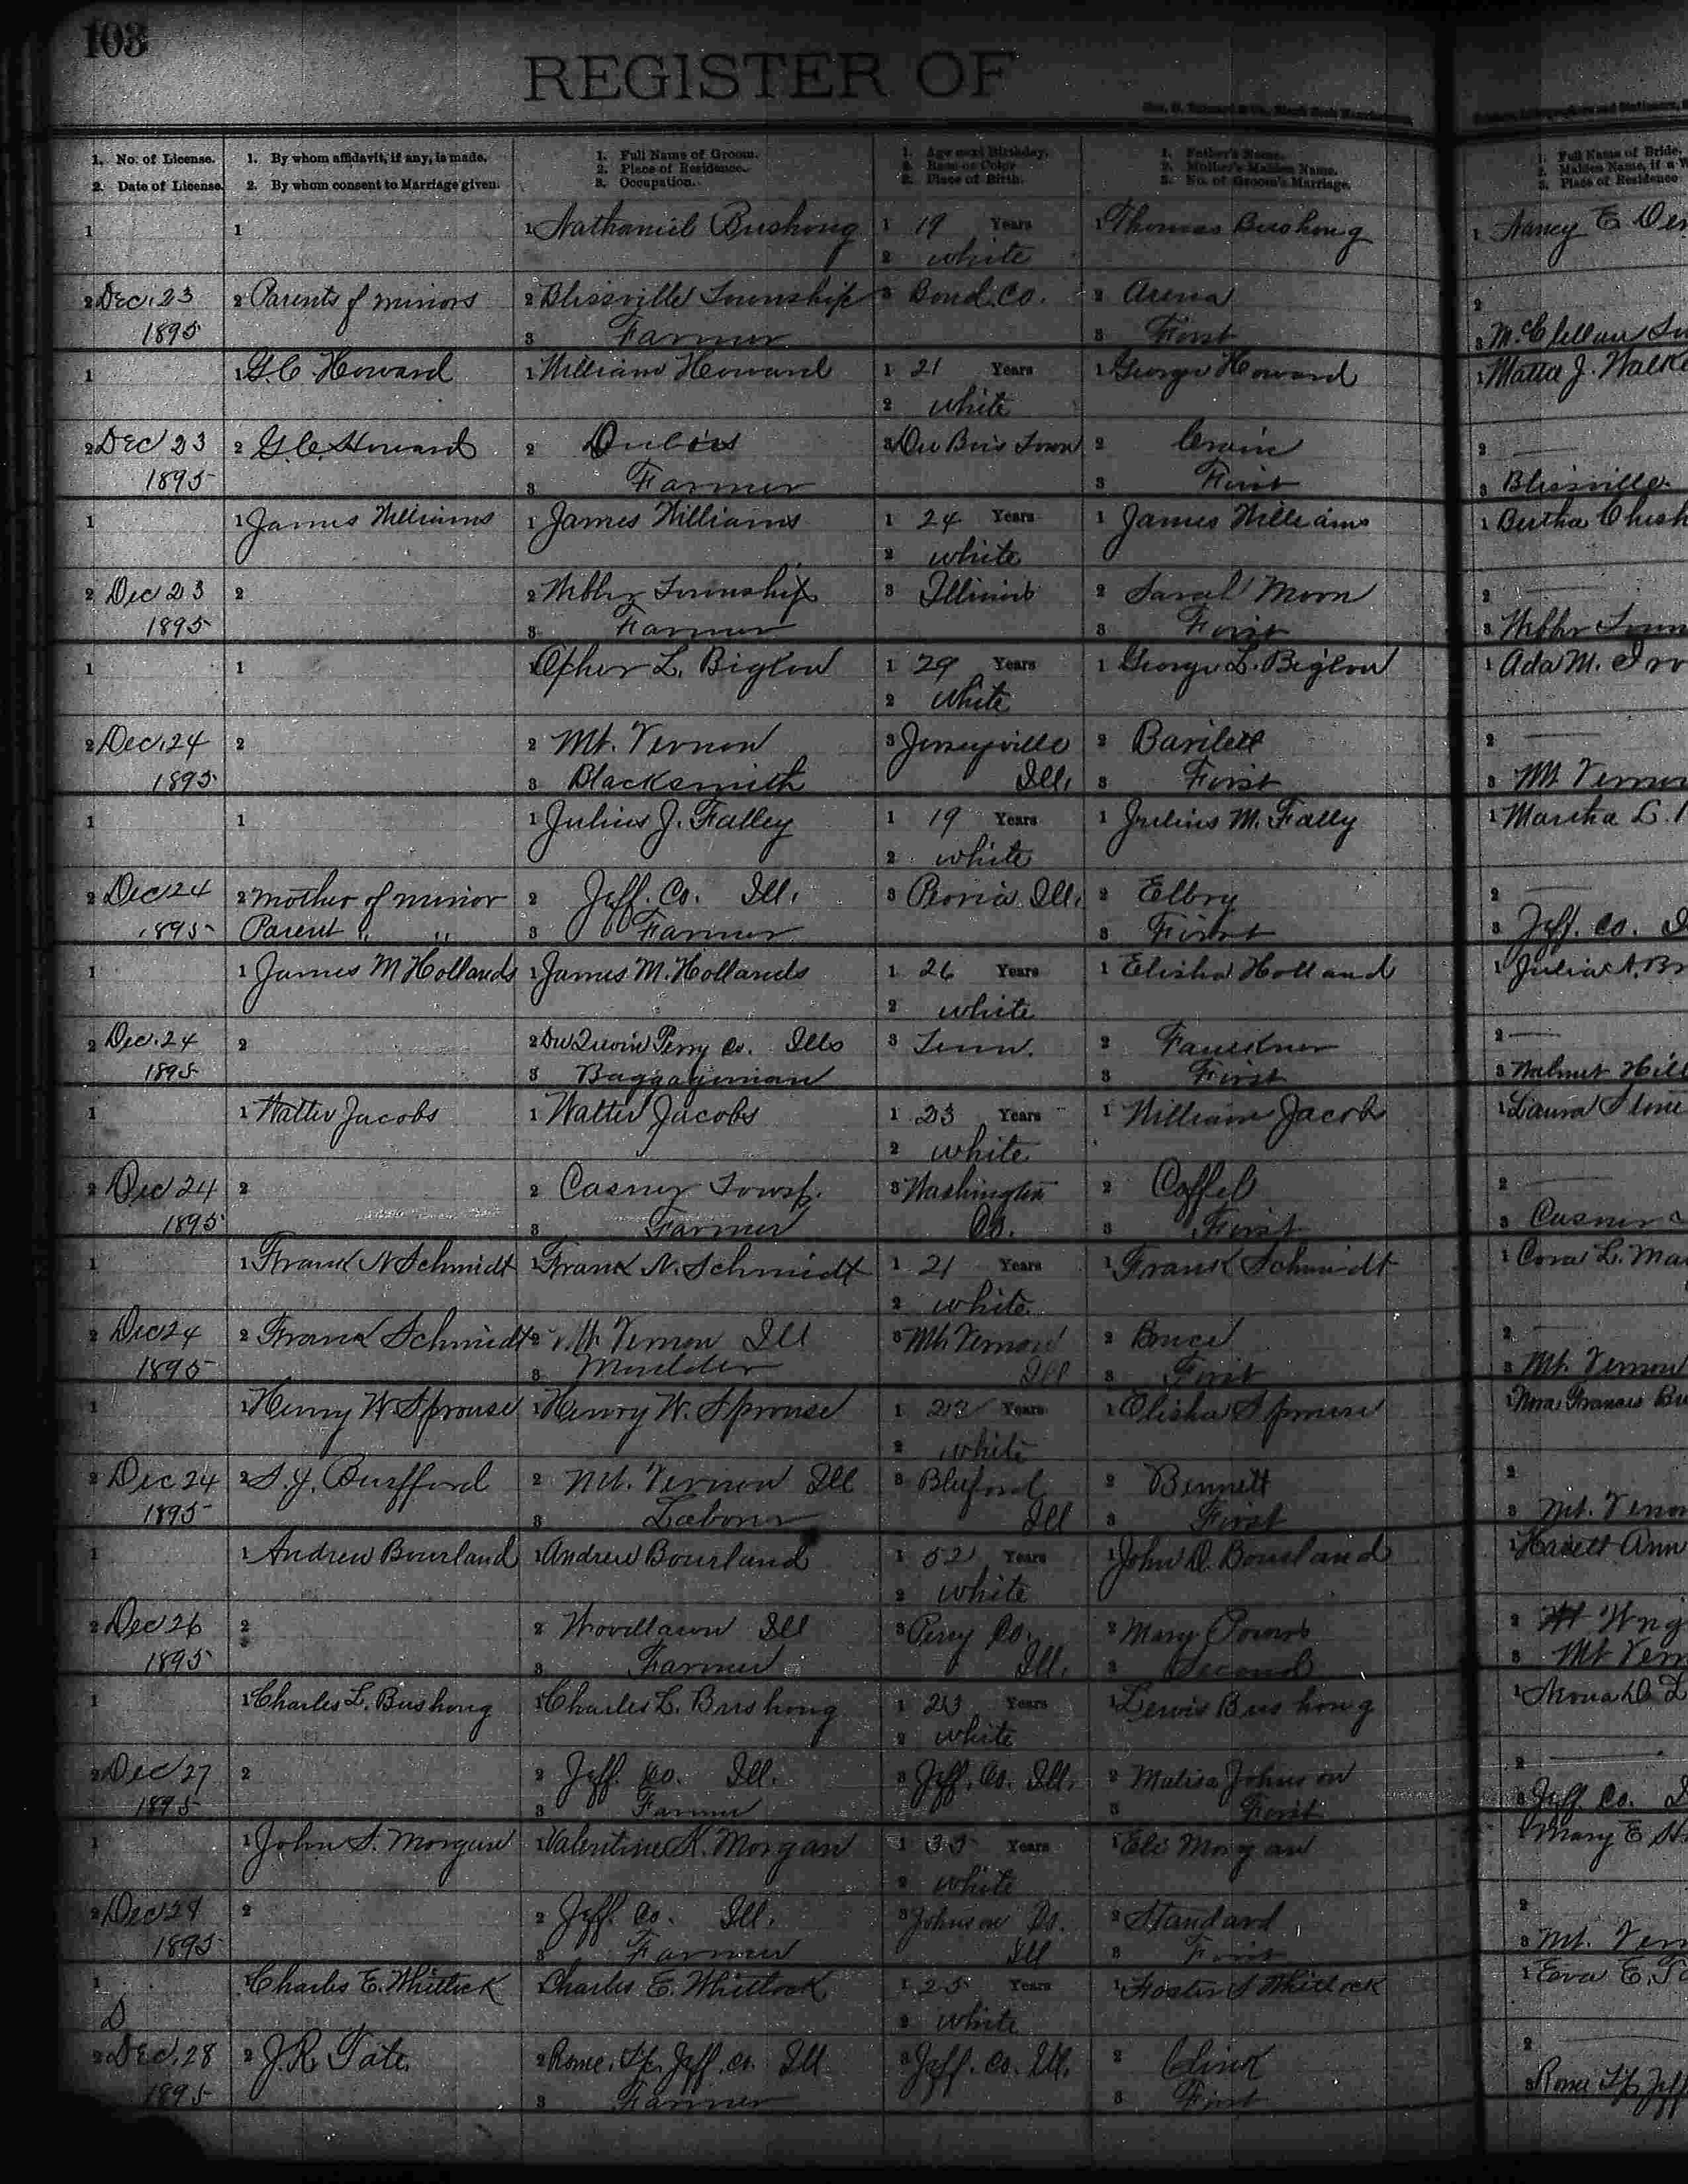 103
REGISTER OF
1. No. of License.
2. Date of License.
1. By whom affidavit, if any, is made.
2. By whom consent to Marriage given.
1. Full Name of Groom.
2. Place of Residence.
3. Occupation.
1. Age next Birthday.
2. Race or Color.
3. Place of Birth.
1. Father's Name.
2. Mother's Maiden Name.
3. No. of Groom's Marriage.
1. Full Name of Bride.
2. Maiden Name, if a W
3. Place of Residence
1 1 1 Nathaniel Bushong 1 19 Years 1 Thomas Bushong 1 Nancy E. Den
2 white
2 Dec. 23 2 Parents of minors 2 Blissville Township 3 Bond Co. 2 Arena 2
1895 3 Farmer 3 First 3 McClellan
1 1 G. C. Howard 1 William Howard 1 21 Years 1 George Howard 1 Matta J. Walke
2 white
2 Dec 23 2 G. C. Howard 2 Dubois 3 Du Bois Town 2 Crain 2
1895 3 Farmer 3 First 3 Blissville
1 1 James Williams 1 James Williams 1 24 Years 1 James Williams 1 Bertha Chish
2 white
2 Dec 23 2 2 Webber Township 3 Illinois 2 Sarah Moon 2
1895 3 Farmer 3 First 3 Webber Town
1 1 1 Opher L. Biglow 1 29 Years 1 George L. Biglow 1 Ada M.
2 white
2 Dec. 24 2 2 Mt. Vernon 3 Jerseyville 2 Bartlett 2
1895 3 Blacksmith Ill. 3 First 3 Mt. Vernon
1 1 1 Julius J. Falley 1 19 Years 1 Julius M. Fally 1 Martha L.
2 white
2 Dec 24 2 mother of minor 2 Jeff. Co. Ill. 3 Peoria Ill. 2 Elbry 2
1895 Parent " " 3 Farmer 3 First 3 Jeff. Co.
1 1 James M Hollands 1 James M. Hollands 1 26 Years 1 Elisha Holland 1 Julia A. Br
2 white
2 Dec. 24 2 2 Du Quoin Perry Co. Ills 3 Tenn. 2 Faulkner 2
1895 3 Baggageman 3 First 3 Walnut Hill
1 1 Walter Jacobs 1 Walter Jacobs 1 23 Years 1 William Jacobs 1 Laura Stone
2 white
2 Dec 24 2 2 Casner Townsp. 3 Washington 2 Coffel 2
1895 3 Farmer Co. 3 First 3 Casner
1 1 Frank N Schmidt 1 Frank N. Schmidt 1 21 Years 1 Frank Schmidt 1 Cora L. Ma
2 white
2 Dec 24 2 Frank Schmidt 2 Mt. Vernon Ill 3 Mt. Vernon 2 Bruce 2
1895 3 Moulder Ill 3 First 3 Mt. Vernon
1 1 Henry W Sprouse 1 Henry W. Sprouse 1 22 Years 1 Elisha Sprouse 1 Nora Frances Bu
2 white
2 Dec 24 2 S. J. Buffford 2 Mt. Vernon Ill 3 Bluford 2 Bennett 2
1895 3 Laborer Ill 3 First 3 Mt. Vernon
1 1 Andrew Bourland 1 Andrew Bourland 1 52 Years 1 John D. Bourland 1 Ann
2 white
2 Dec 26 2 2 Woodlawn Ill 3 Perry Co. 2 Mary Powers 2 Wrig
1895 3 Farmer Ill. 3 Second 3 Mt Vern
1 1 Charles L. Bushong 1 Charles L. Bushong 1 23 Years 1 Lewis Bushong 1
2 white
2 Dec 27 2 2 Jeff. Co. Ill. 3 Jeff. Co. Ill. 2 Malisa Johnson 2
1895 3 Farmer 3 First 3 Jeff. Co.
1 1 John S. Morgan 1 Valentine K. Morgan 1 33 Years 1 Eli Morgan 1 Mary E
2 white
2 Dec 28 2 2 Jeff. Co. Ill. 3 Johnson Co. 2 Standard 2
1895 3 Farmer Ill 3 First 3 Mt. Vern
1 1 Charles E. Whitlock Charles E. Whitlock 1 25 Years 1 Foster S Whitlock 1 Eava E.
D 2 white
2 Dec. 28 2 J. R. Tate. 2 Rome. Tp. Jeff. Co. Ill 3 Jeff. Co. Ill. 2 Clink 2
1895 3 Farmer 3 First 3 Rome Tp Jeff